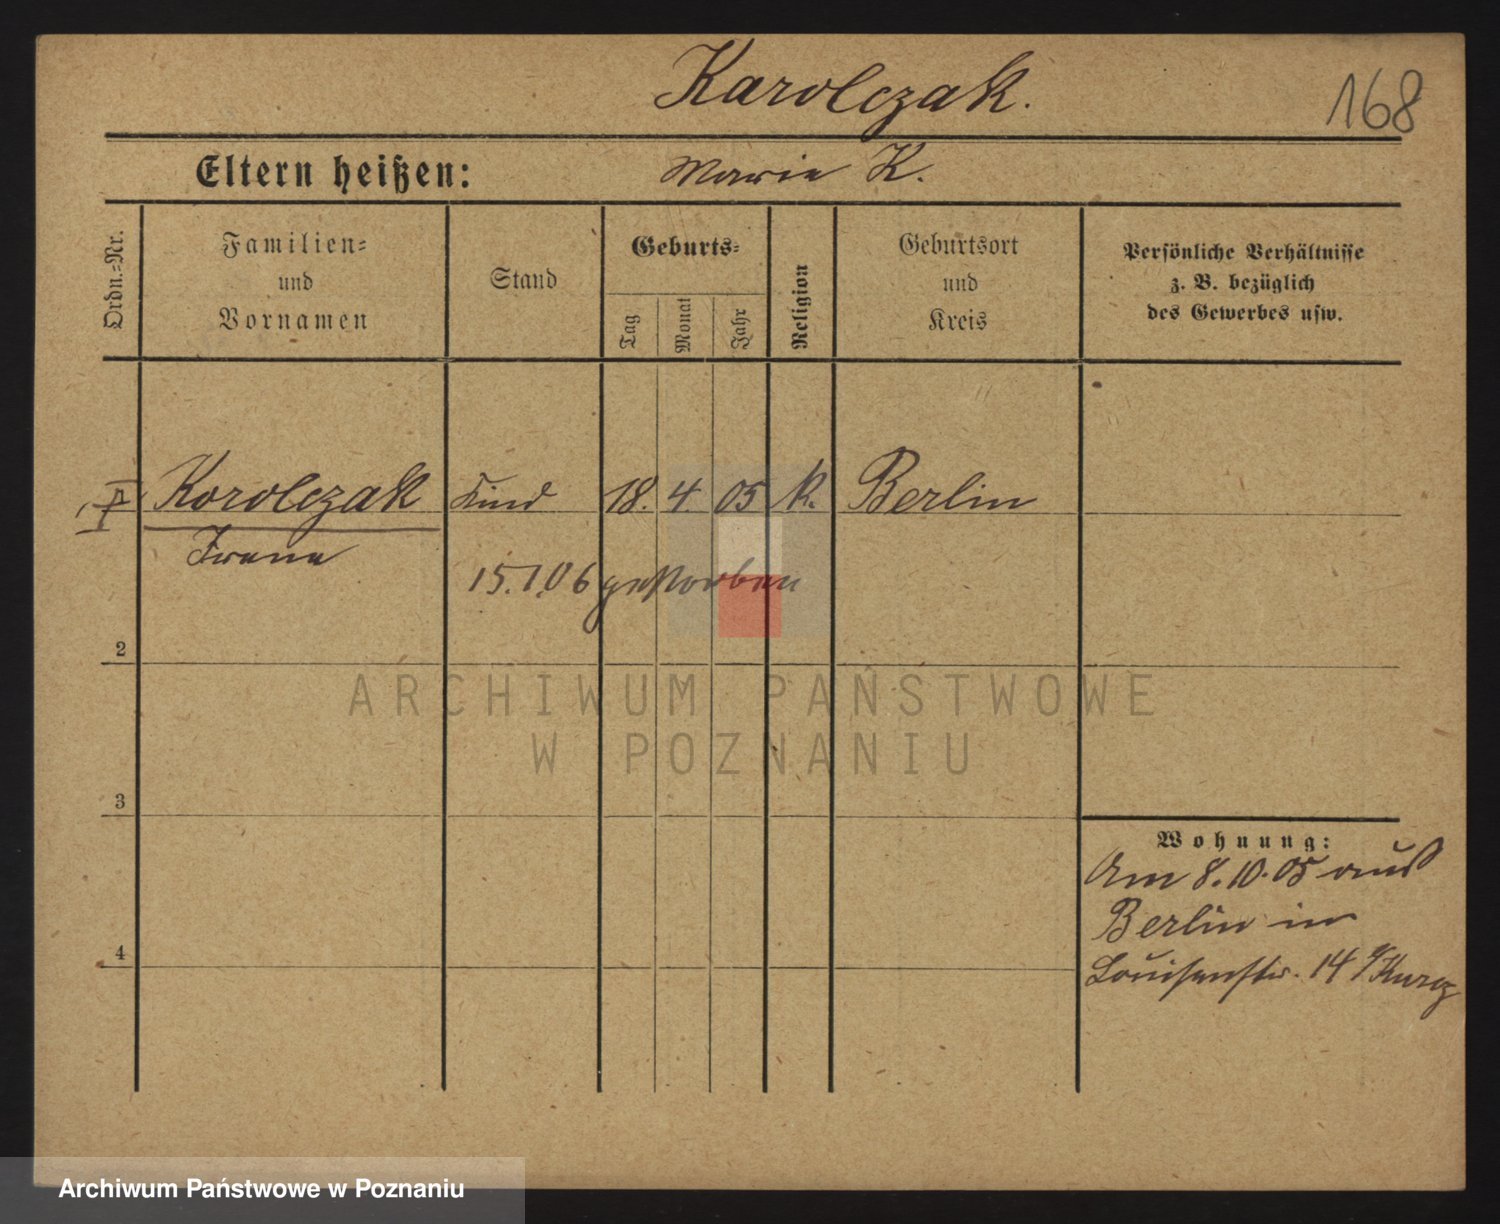 Karolczak.
168
Eltern heißen: Marie K.
Ordn.-Nr.
Familien-
und
Vornamen
Stand
Geburts-
Tag
Monat
Jahr
Religion
Geburtsort
und
Kreis
Persönliche Verhältnisse
z. B. bezüglich
des Gewerbes usw.
Korolczak Kind 18. 4. 05 k. Berlin
Irene
15.1.06 gestorben
2
3
4
Wohnung:
Am 8.10.05 aus
Berlin in
Louisenstr. 14
ARCHIWUM PAŃSTWOWE
W POZNANIU
Archiwum Państwowe w Poznaniu